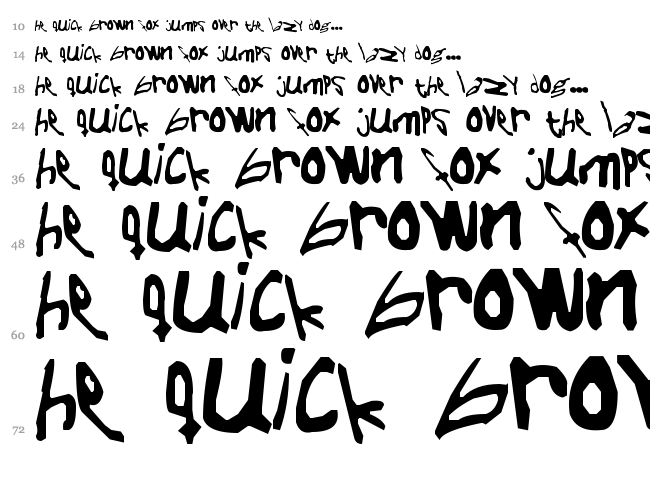 10 he quick brown fox jumps over the lazy dog...
14 he quick brown fox jumps over the lazy dog...
18 he quick brown fox jumps over the lazy dog...
24 he quick brown fox jumps over the laz
36 he quick brown fox jumps
48 he quick brown fox
60 he quick brown
72 he quick brow